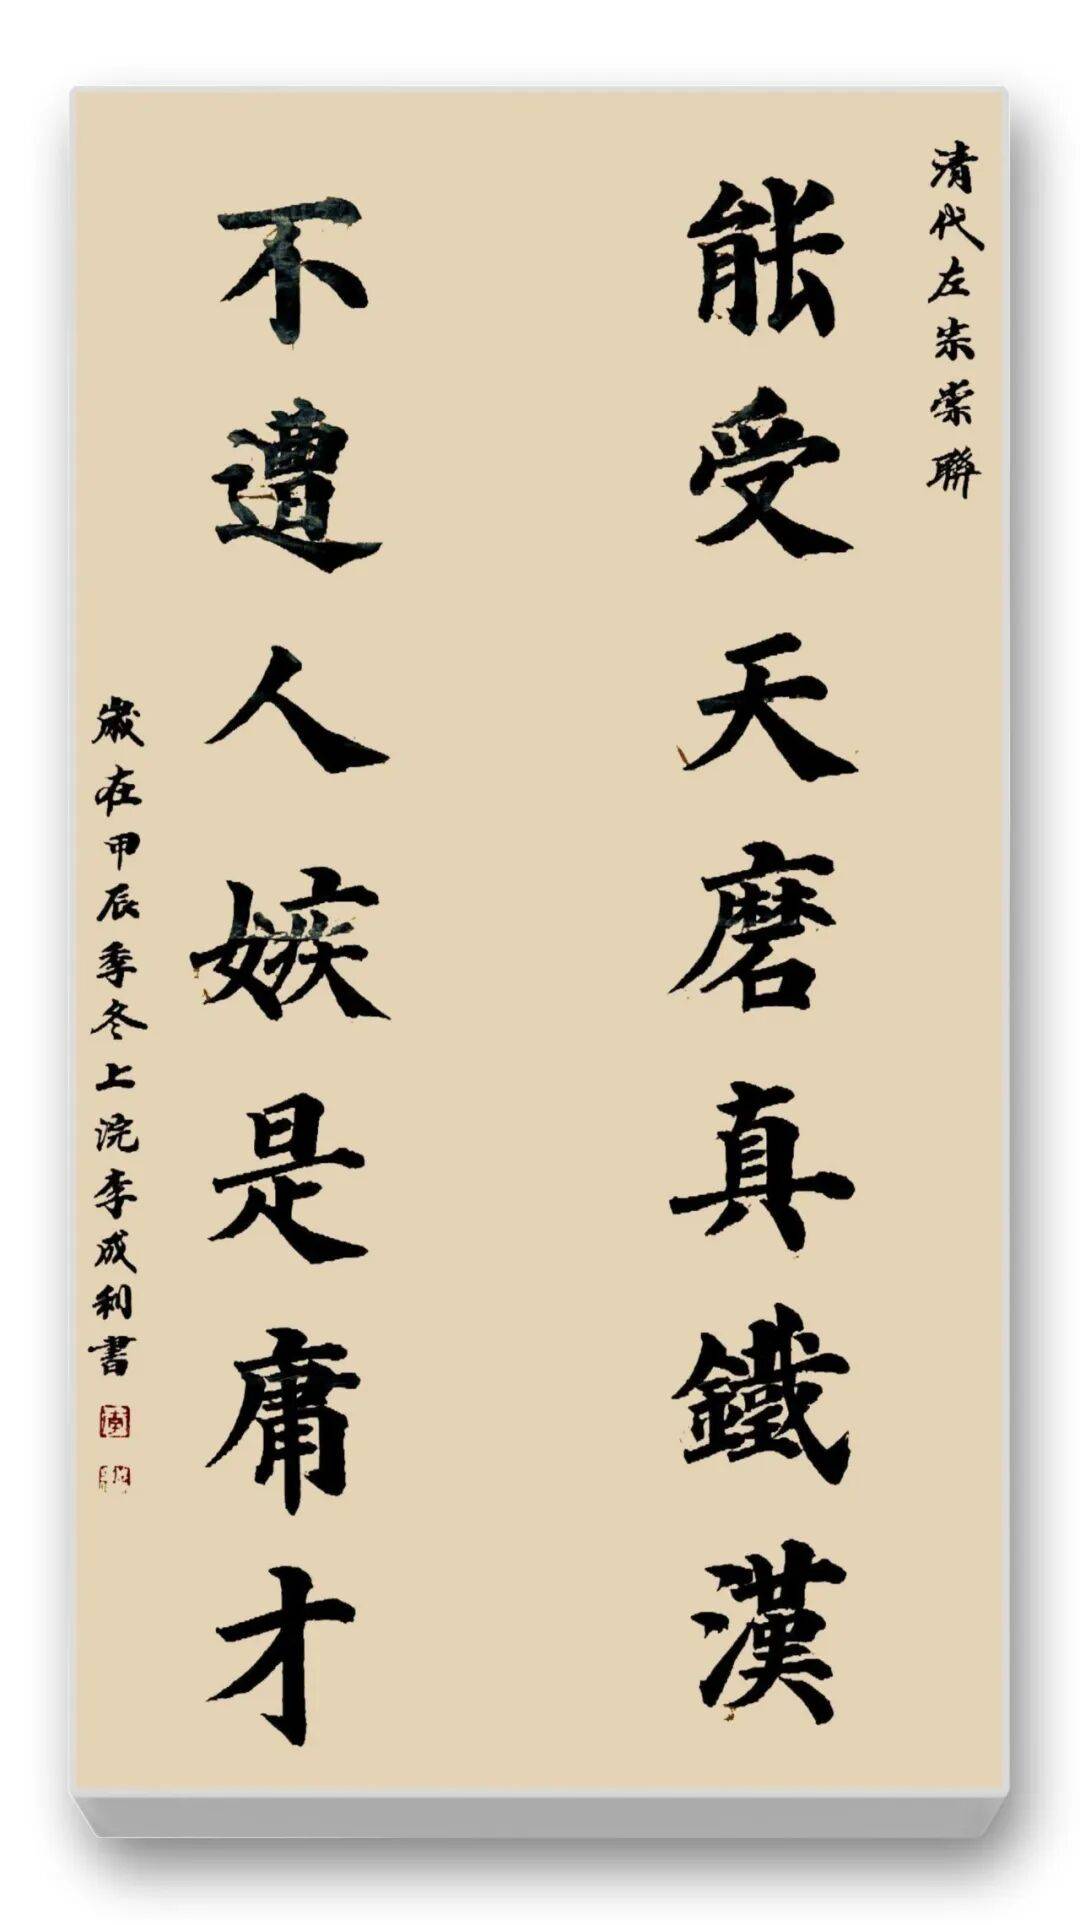 清代左宗棠聯
能受天磨真鐵漢
不遭人嫉是庸才
歲在甲辰季冬上浣李成利書